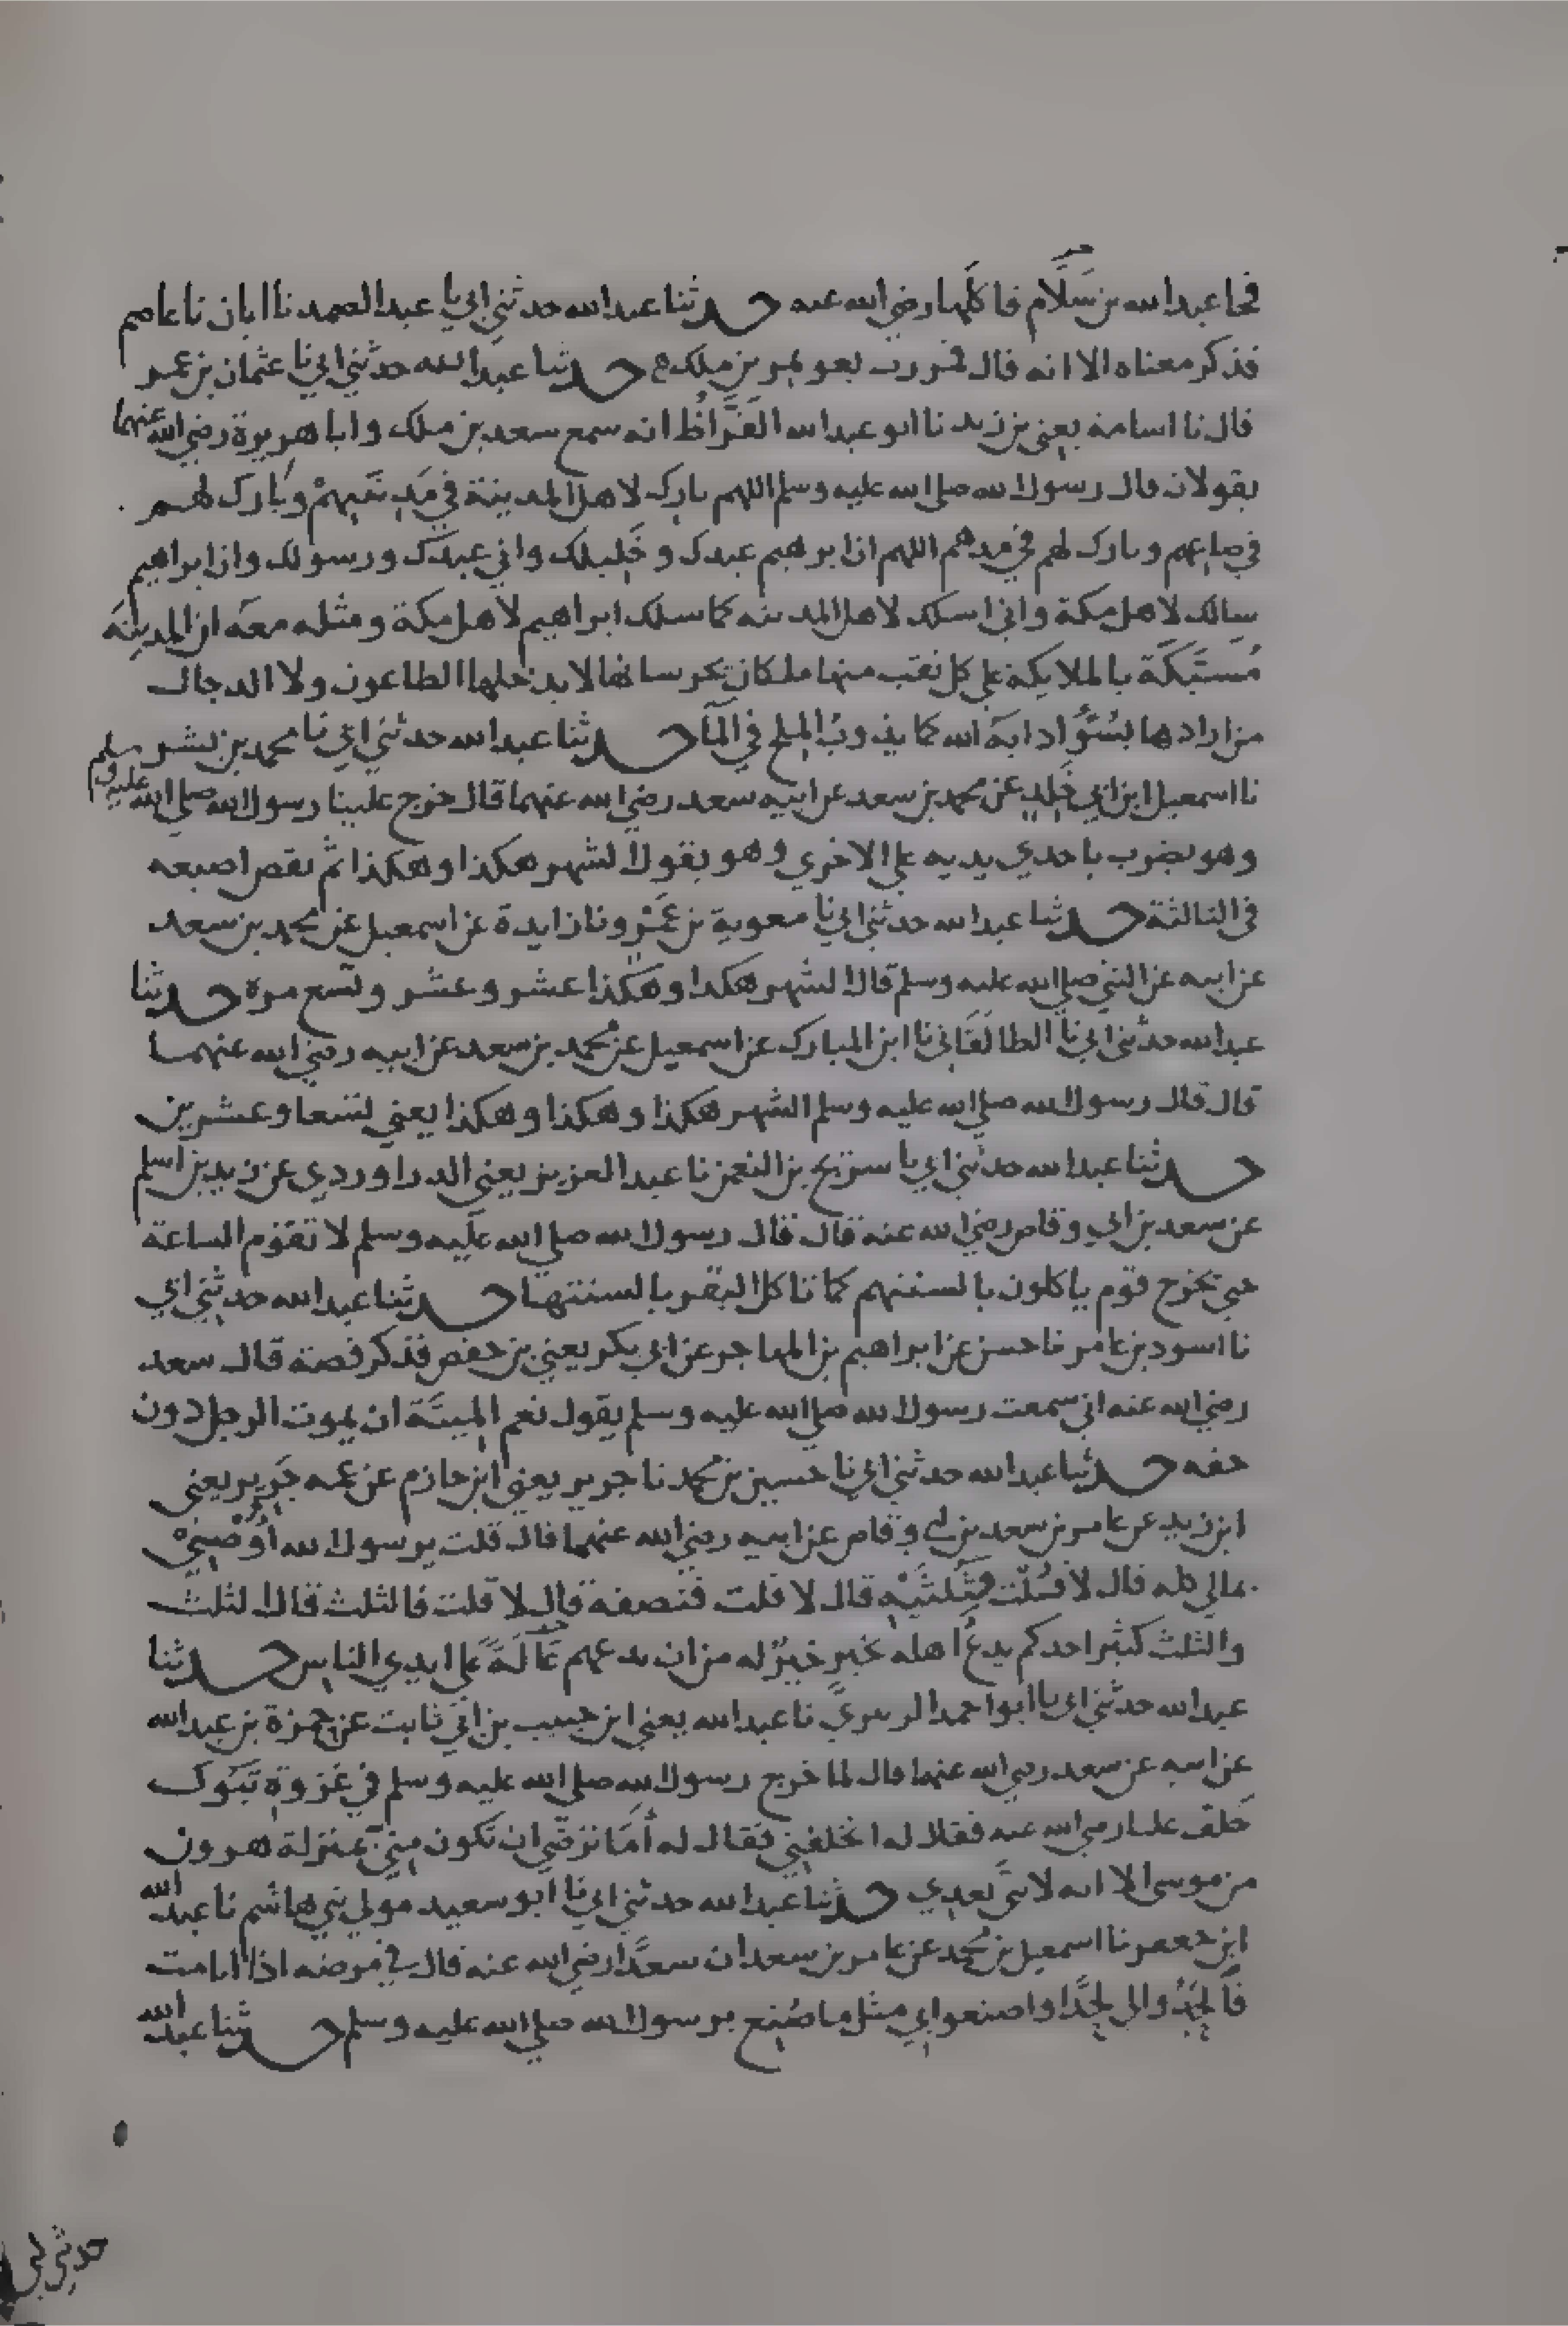 فجا عبدالله بن سَلَّام فاكلها رضي الله عنه حدثنا عبدالله حدثني ابي نا عبدالصمد نا ابان نا عاصم
فذكر معناه الا انه قال فمررت بعويمر بن ملك ح حدثنا عبدالله حدثني ابي نا عثمان بن عمر
قال نا اسامة يعني بن زيد نا ابو عبدالله القَرَّاظُ انه سمع سعد بن ملك وابا هريرة رضي الله عنهما
يقولان قال رسول الله صلي الله عليه وسلم اللهم بارك لاهل المدينة في مَدِينَتِهِمْ وبَارك لهم
في صاعهم وبارك لهم في مدهم اللهم ان ابرهيم عبدك وخَلِيلك واني عبدك ورسولك وان ابراهيم
سالك لاهل مكة واني اسلك لاهل المدينه كما سلك ابراهيم لاهل مكة ومثله معَه ان المدينَه
مُسَتَبِكَة بالملايكة علي كل نقب منها ملكان يحرسانها لا يدخلها الطاعون ولا الدجال
من ارادها بسُوَّ ادابهَ الله كما يذوبُ الملح في المآ حدثنا عبدالله حدثني ابي نا محمد بن بشر
نا اسمعيل ابن ابي خَلِد عن محمد بن سعد عن ابيه سعد رضي الله عنهما قال خرج علينا رسول الله صلي الله عليه وسلم
وهو يضرب باحدي يديه علي الاخري وهو يقول الشهر هكذا وهكذا ثم نقص اصبعه
في الثالثة حدثنا عبدالله حدثني ابي نا معوية بن عَمْرٍو نا زايدة عن اسمعيل عن محمد بن سعد
عن ابيه عن النبي صلي الله عليه وسلم قال الشهر هكدا وهكذا عشر وعشر وتسع مرة حدثنا
عبدالله حدثني ابي نا الطالَقَاني نا ابن المبارك عن اسمعيل عن محمد بن سعد عن ابيه رضي الله عنهما
قال قال رسول الله صلي الله عليه وسلم الشهر هكذا وهكذا وهكذا يعني تسعا وعشرين
حدثنا عبدالله حدثني ابي نا سريج بن النعمن نا عبدالعزيز يعني الدراوردي عن زيد بن اسلم
عن سعد بن ابي وقاص رضي الله عنه قال قال رسول الله صلي الله عليه وسلم لا تقوم الساعة
حتي يخرج قوم ياكلون بالسنتهم كما تاكل البقر بالسنتها حدثنا عبدالله حدثني ابي
نا اسود بن عامر نا حسن عن ابراهيم بن المهاجر عن ابي بكر يعني بن حفص فذكر قصة قال سعد
رضي الله عنه اني سمعت رسول الله صلي الله عليه وسلم يقول نعم المِيتَة ان يموت الرجل دون
حقه حدثنا عبدالله حدثني ابي نا حسين بن محمد نا جرير يعني ابن حازم عن عمه جَرِير يعني
ابن زيد عن عامر بن سعد بن ابي وقاص عن ابيه رضي الله عنهما قال قلت يرسول الله اُوْصِيْ
بمالي كله قال لا قُلت فثُلثَيْهِ قال لا قلت فنصفه قال لا قلت فالثلث قال الثلث
والثلث كثير احدكم يدعُ اهله بخيرٍ خيرٌ له من ان يدعهم عَالَةً علي ايدي الناس حدثنا
عبدالله حدثني ابي نا ابو احمد الزبيري نا عبدالله يعني ابن حبيب بن ابي ثابت عن حمزة بن عبدالله
عن ابيه عن سعد رضي الله عنهما قال لما خرج رسول الله صلي الله عليه وسلم في غزوةِ تَبُوك
خَلف عليا رضي الله عنه فقال له اتخلفني فقال له أَمَا ترضَي ان تكون مِنِّي بمنزلة هرون
من موسي الا انه لا نبيَّ بعدِي حدثنا عبدالله حدثني ابي نا ابو سعيد مولي بني هاشم نا عبدالله
ابن جعفر نا اسمعيل بن محمد عن عامر بن سعد ان سعدًا رضي الله عنه قال في مرضه اذا انا مت
فَالحِدُوا لي لحْدًا واصنعوا بي مثل ما صُنِع برسول الله صلي الله عليه وسلم حدثنا عبدالله
حدثني ابي